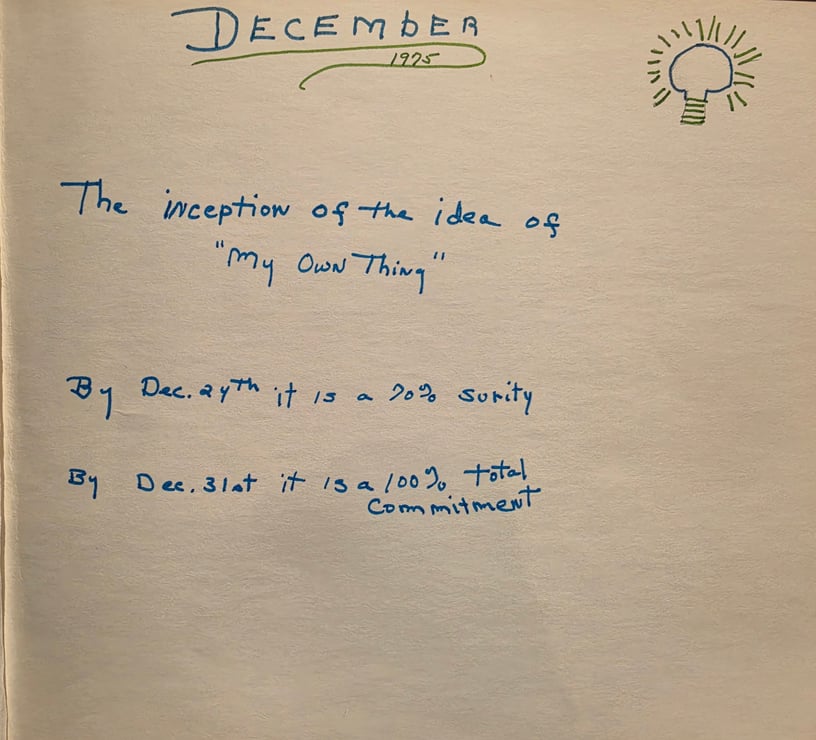 DECEMBER
1975
The inception of the idea of
"My Own Thing"
By Dec. 24th it is a 70% surity
By Dec. 31st it is a 100% total
commitment